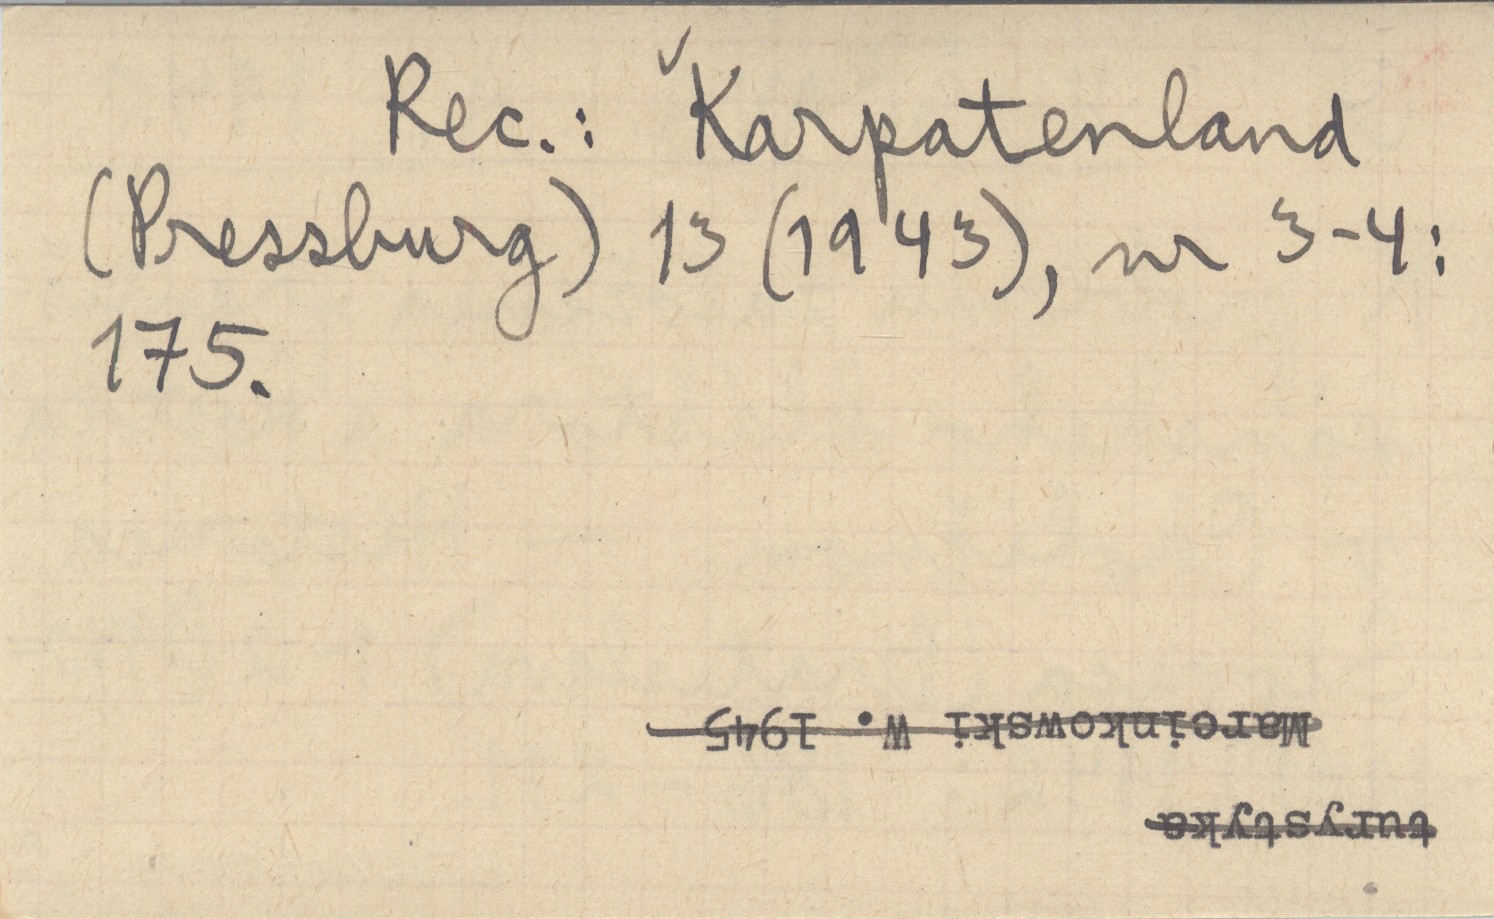 Rec.: Karpatenland
(Pressburg) 13 (1943), nr 3-4:
175.
turystyka
Marcinkowski W. 1945